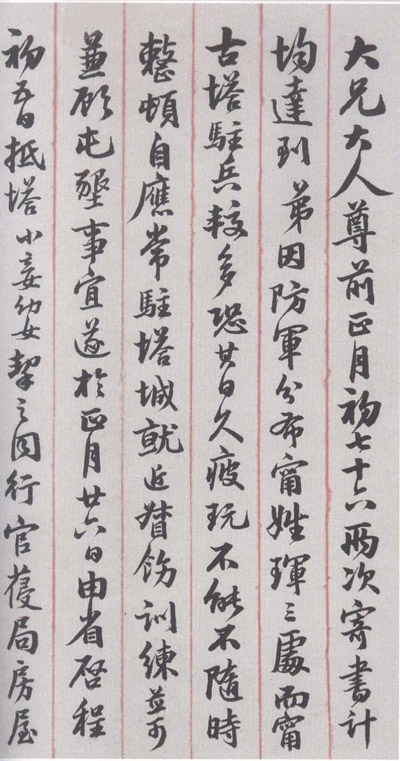 大兄大人尊前正月初七十六兩次寄書計
均達到弟因防軍分布甯姓琿三處而甯
古塔駐兵較多恐其日久疲玩不能不隨時
整頓自應常駐塔城就近督飭訓練並可
兼顧屯墾事宜遂於正月廿六日由省啓程
初五日抵塔小妾幼女挈之同行官葠局房屋